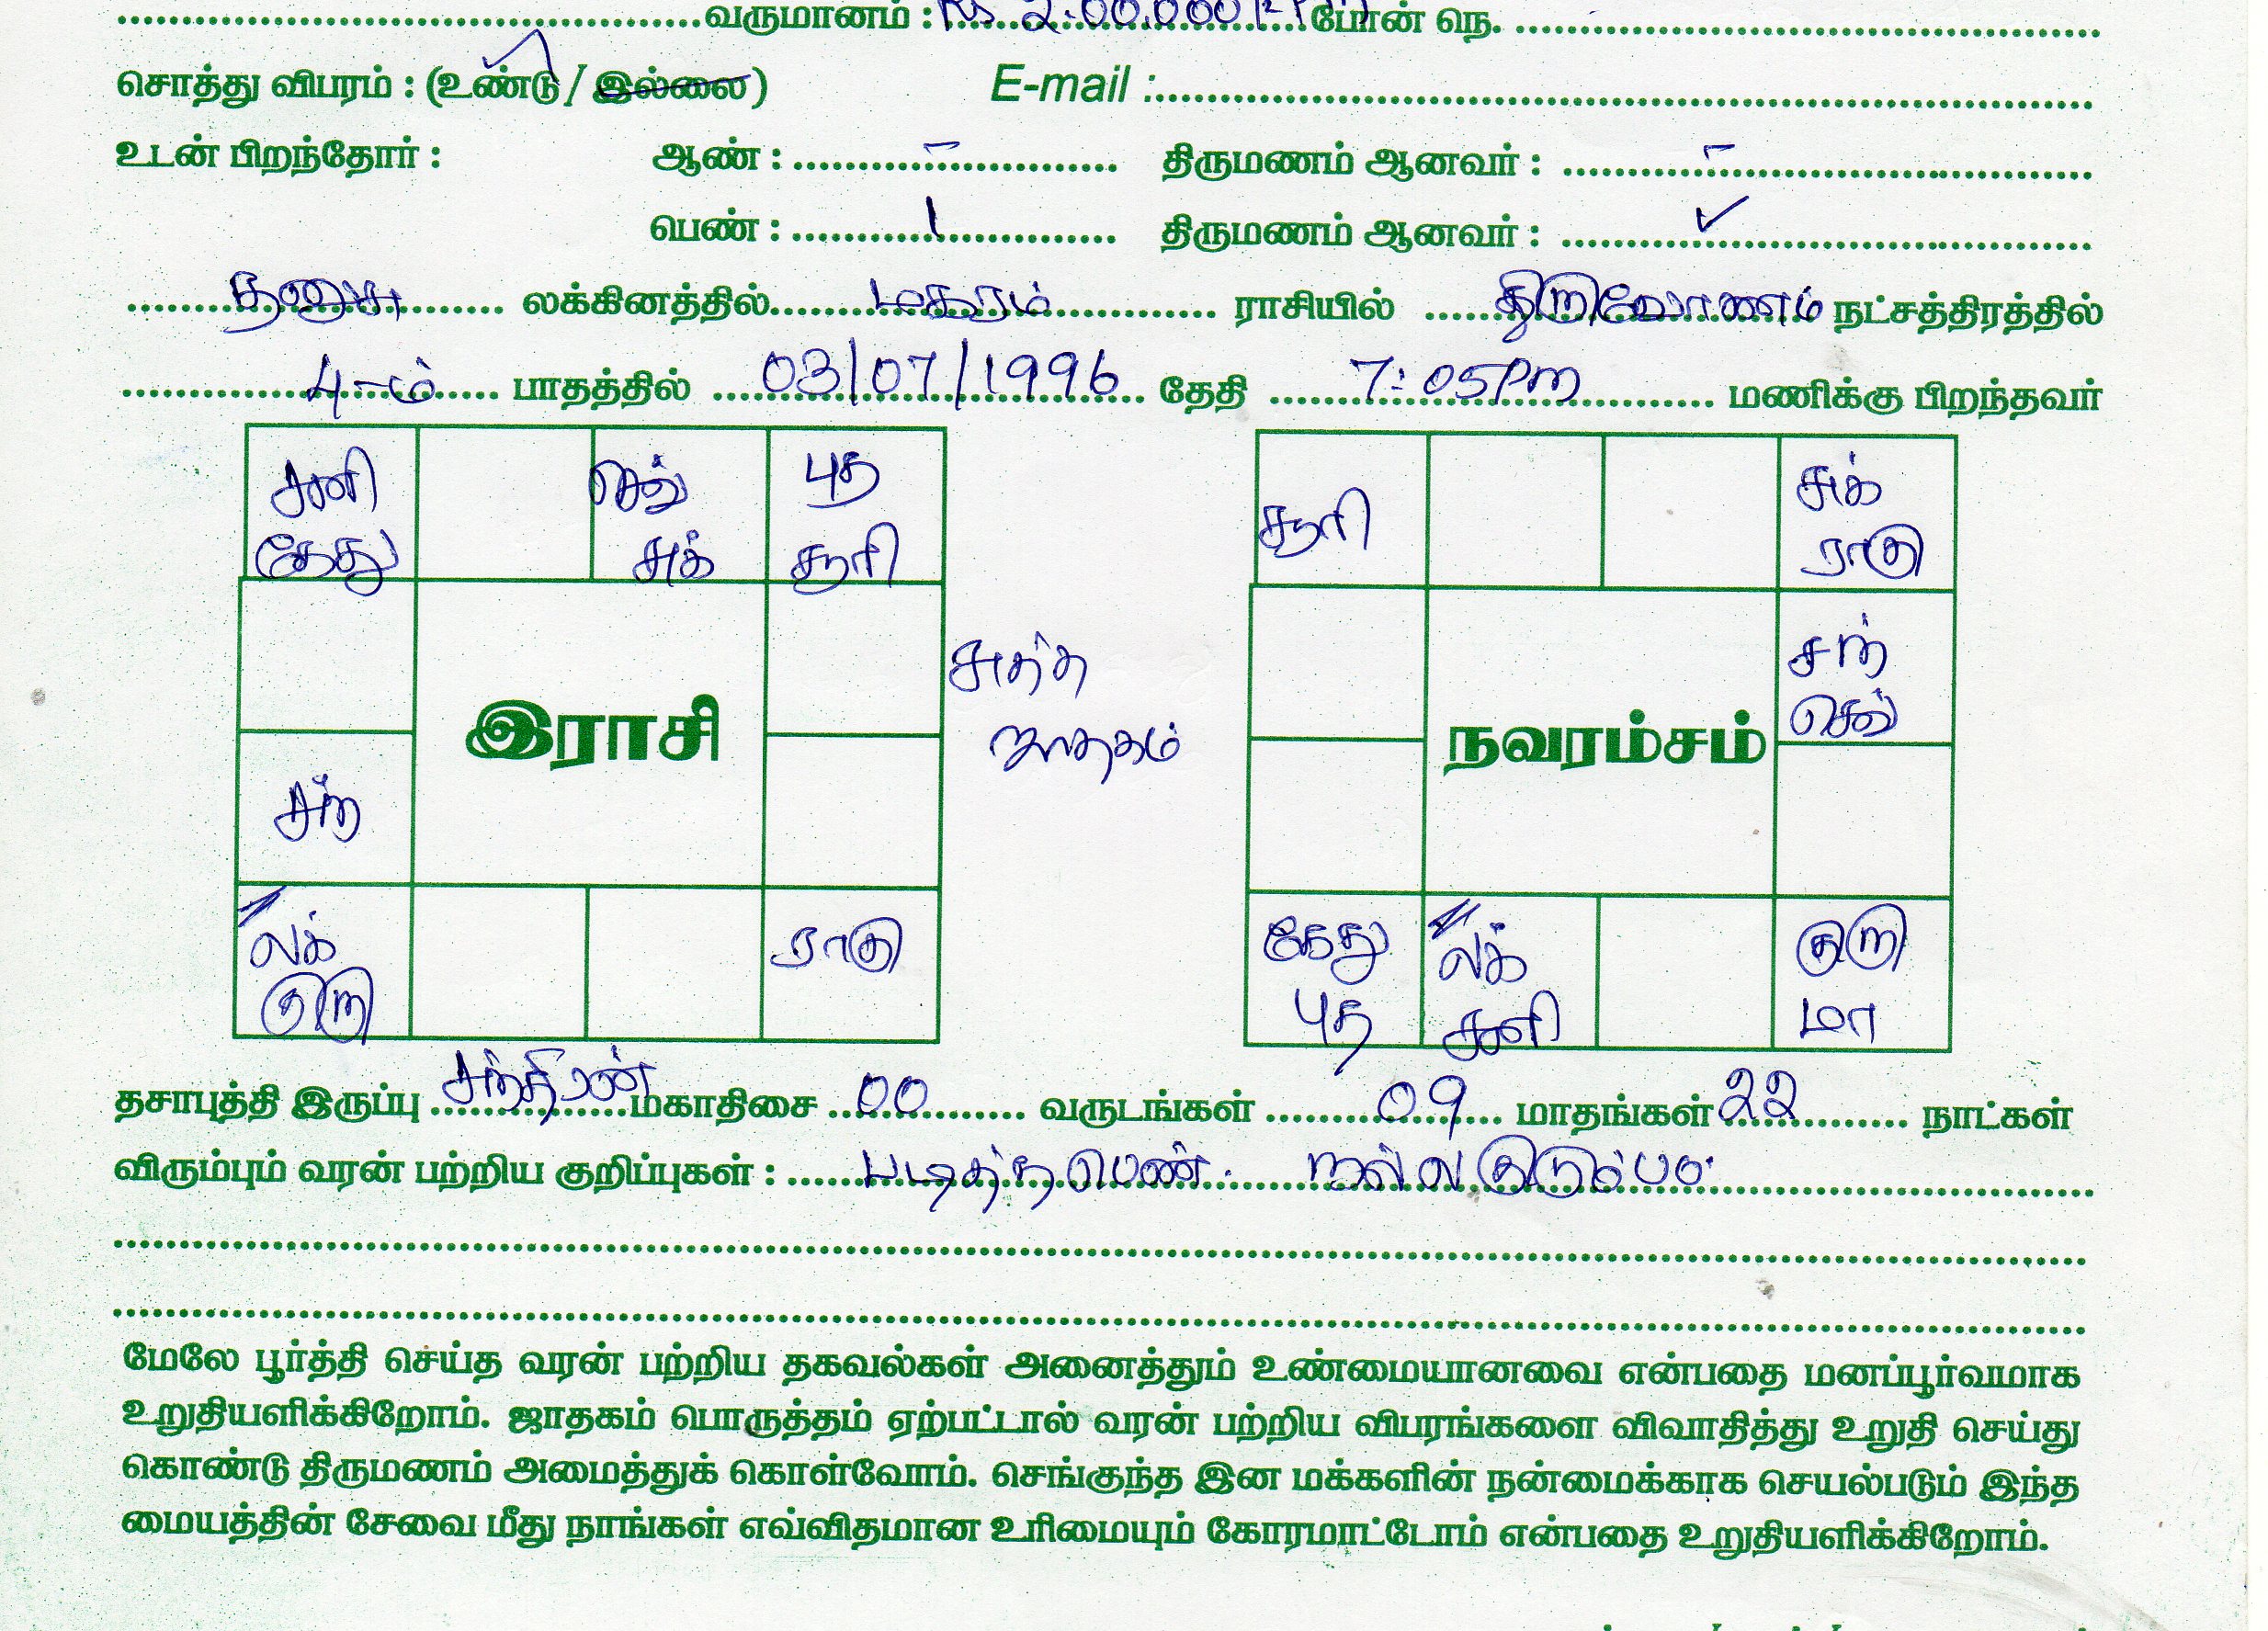 வருமானம் : Rs 2.00.000 போன் நெ.
சொத்து விபரம் : (உண்டு / இல்லை) E-mail :
உடன் பிறந்தோர் : ஆண் : – திருமணம் ஆனவர் : –
பெண் : 1 திருமணம் ஆனவர் : ✓
தனுசு லக்கினத்தில் மகரம் ராசியில் திருவோணம் நட்சத்திரத்தில்
4-ம் பாதத்தில் 03/07/1996 தேதி 7:05 Pm மணிக்கு பிறந்தவர்
சனி கேது
செவ் சுக்
புத சூரி
சந்
இராசி
லக் குரு
ராகு
சுத்த
ஜாதகம்
சூரி
சுக் ராகு
சந் செவ்
நவரம்சம்
கேது புத
லக் சனி
குரு மா
தசாபுத்தி இருப்பு சந்திரன் மகாதிசை 00 வருடங்கள் 09 மாதங்கள் 22 நாட்கள்
விரும்பும் வரன் பற்றிய குறிப்புகள் : படித்த பெண். நல்ல குடும்பம்
மேலே பூர்த்தி செய்த வரன் பற்றிய தகவல்கள் அனைத்தும் உண்மையானவை என்பதை மனப்பூர்வமாக
உறுதியளிக்கிறோம். ஜாதகம் பொருத்தம் ஏற்பட்டால் வரன் பற்றிய விபரங்களை விவாதித்து உறுதி செய்து
கொண்டு திருமணம் அமைத்துக் கொள்வோம். செங்குந்த இன மக்களின் நன்மைக்காக செயல்படும் இந்த
மையத்தின் சேவை மீது நாங்கள் எவ்விதமான உரிமையும் கோரமாட்டோம் என்பதை உறுதியளிக்கிறோம்.